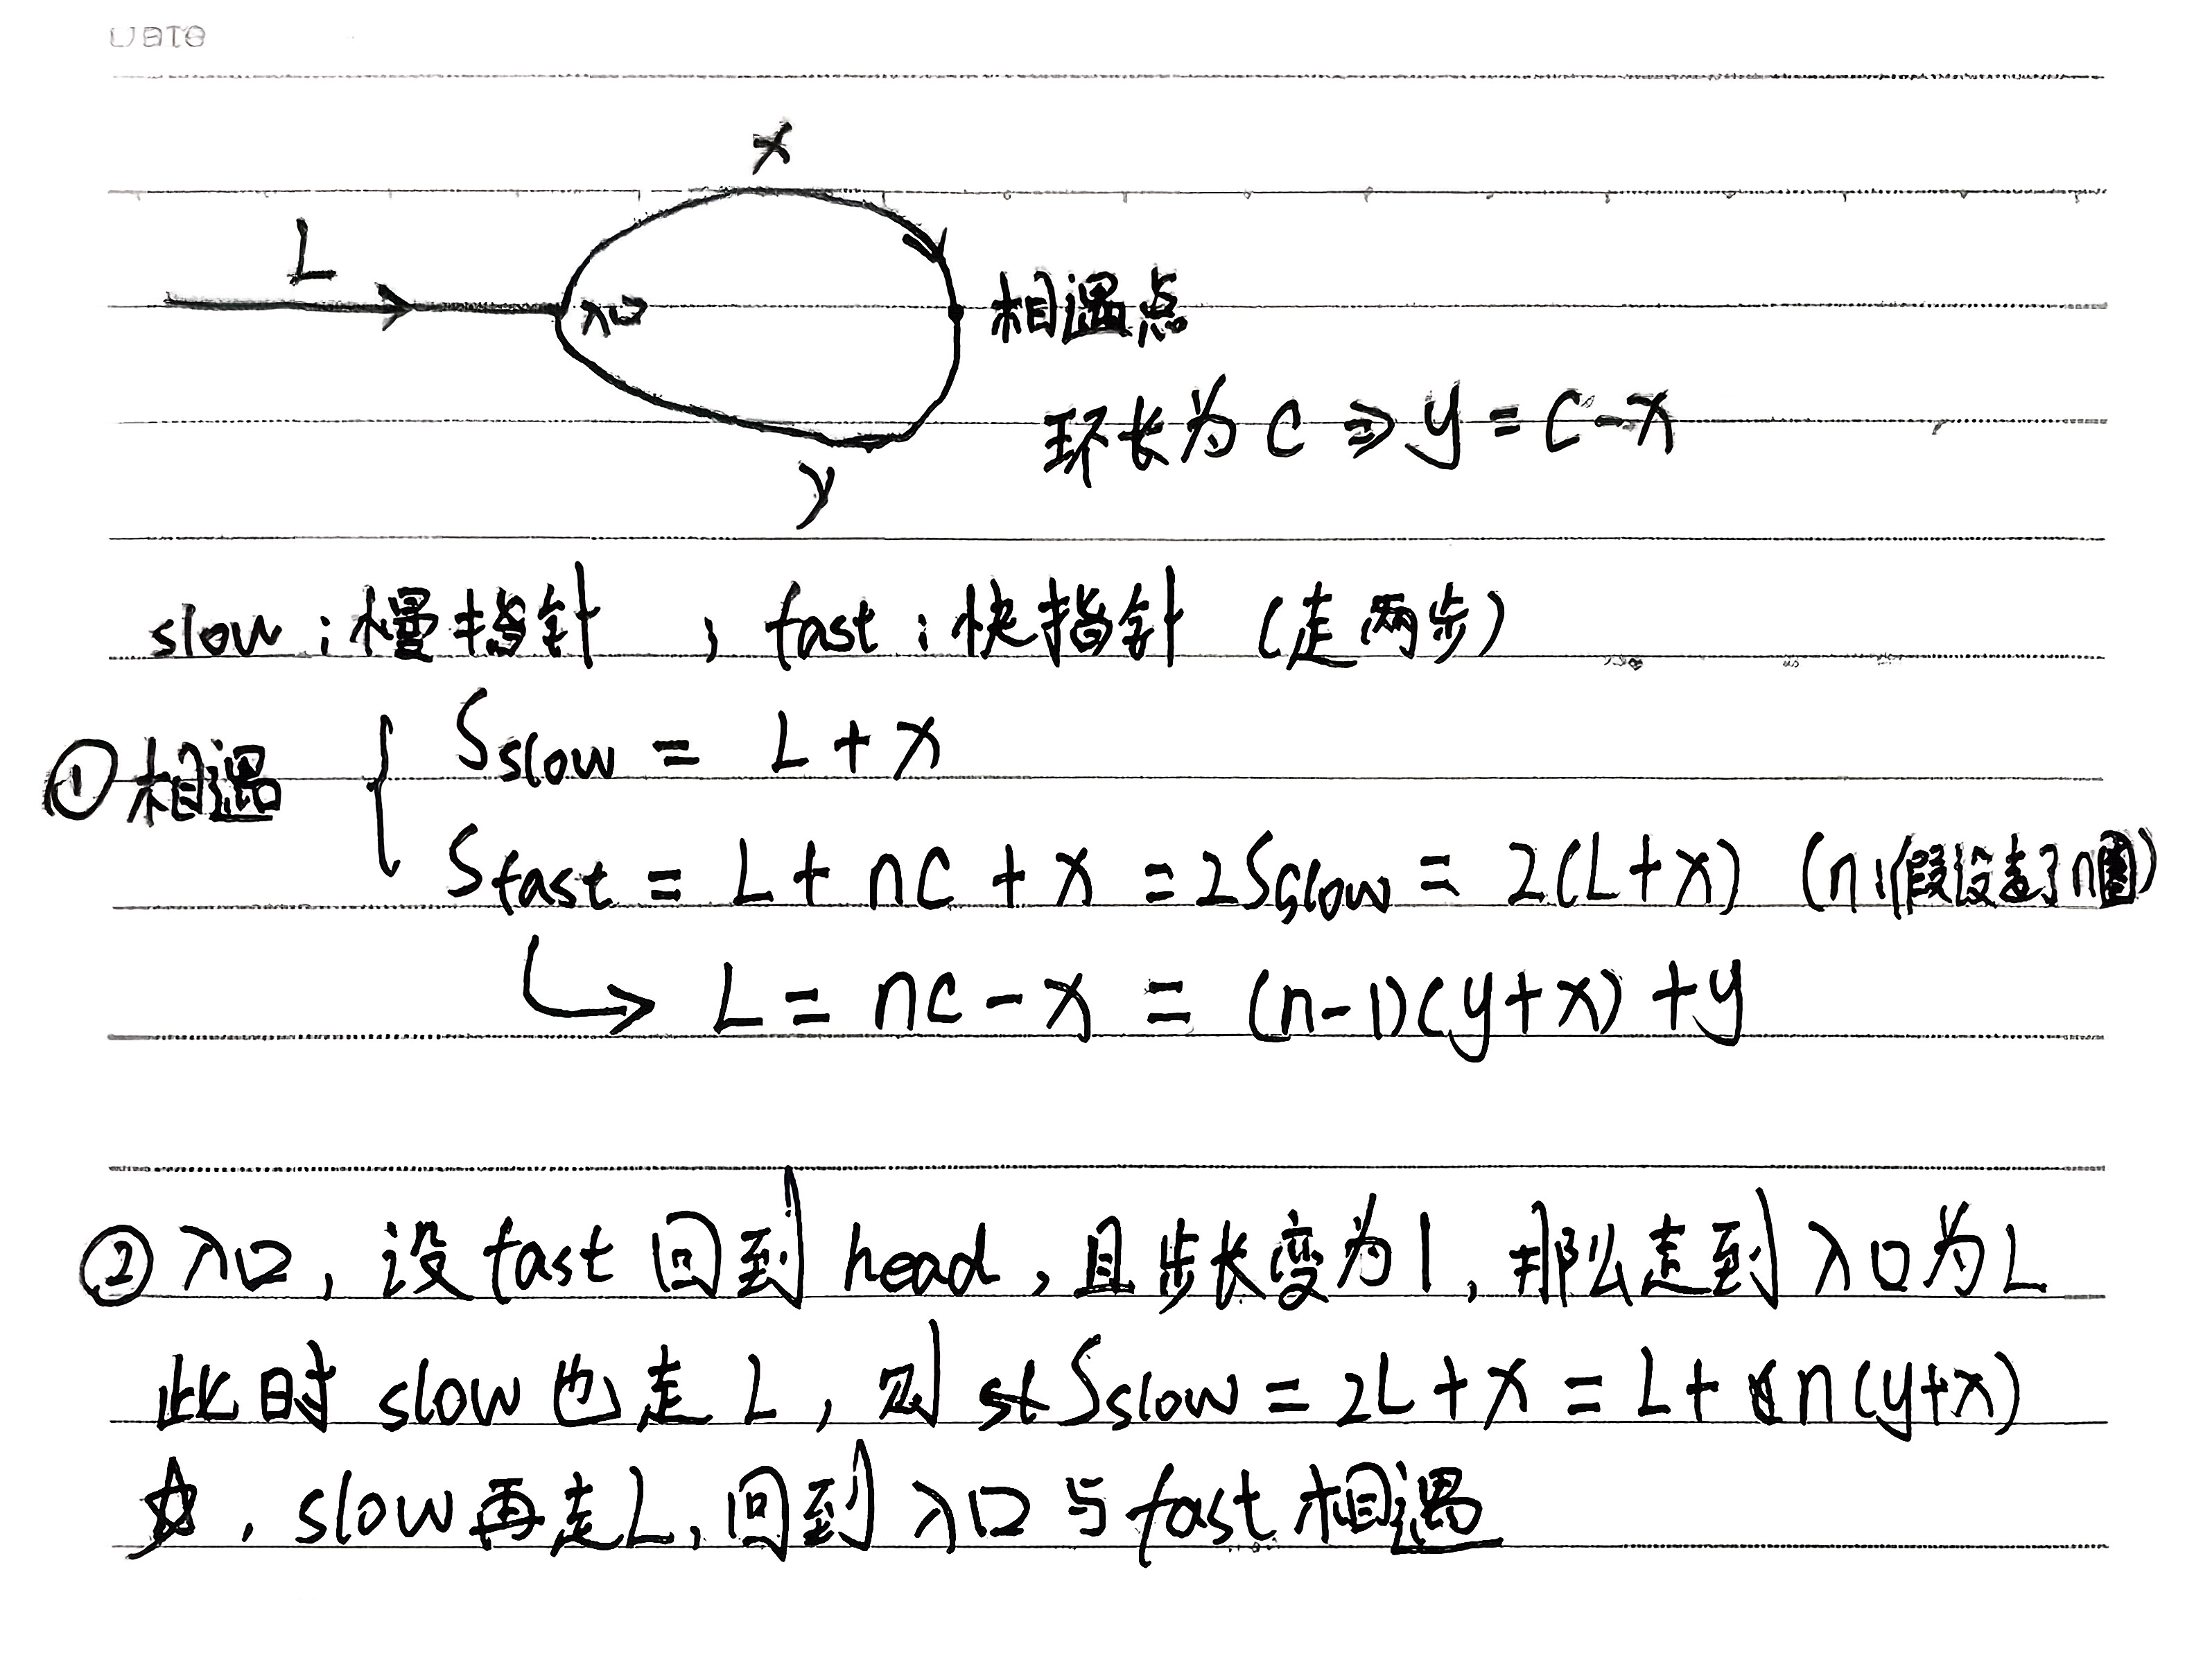 Date
x
L
入口
相遇点
环长为 C ⇒ y = C - x
y
slow : 慢指针 ; fast : 快指针 (走两步)
① 相遇 { Sslow = L + x
Sfast = L + nC + x = 2Sslow = 2(L+x) (n:假设走了n圈)
↳ L = nC - x = (n-1)(y+x) + y
② 入口, 设 fast 回到 head, 且步长变为1, 那么走到入口为L
此时 slow 也走 L, 则 Sslow = 2L + x = L + n(y+x)
, slow再走L, 回到入口与fast相遇